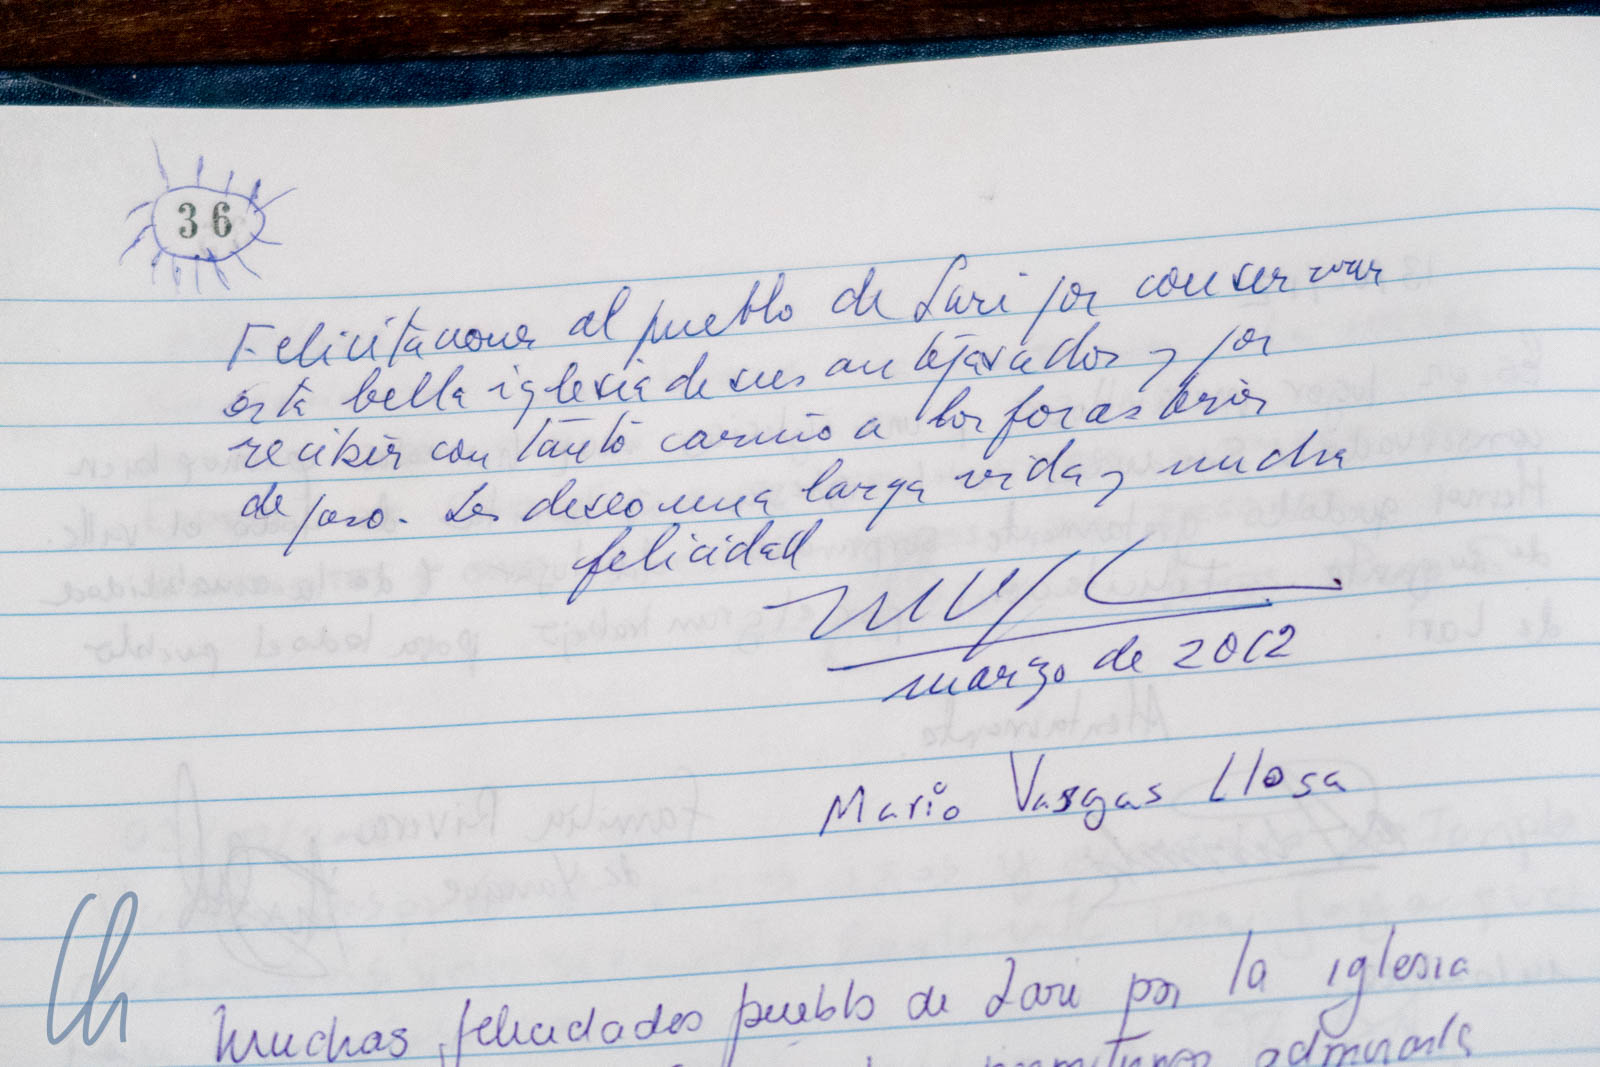 36
Felicitaciones al pueblo de Lari por conservar
esta bella iglesia de sus antepasados y por
recibir con tanto cariño a los forasteros
de paso. Les deseo una larga vida y mucha
felicidad
marzo de 2012
Mario Vargas Llosa
Muchas felicidades pueblo de Lari por la iglesia
admirarla